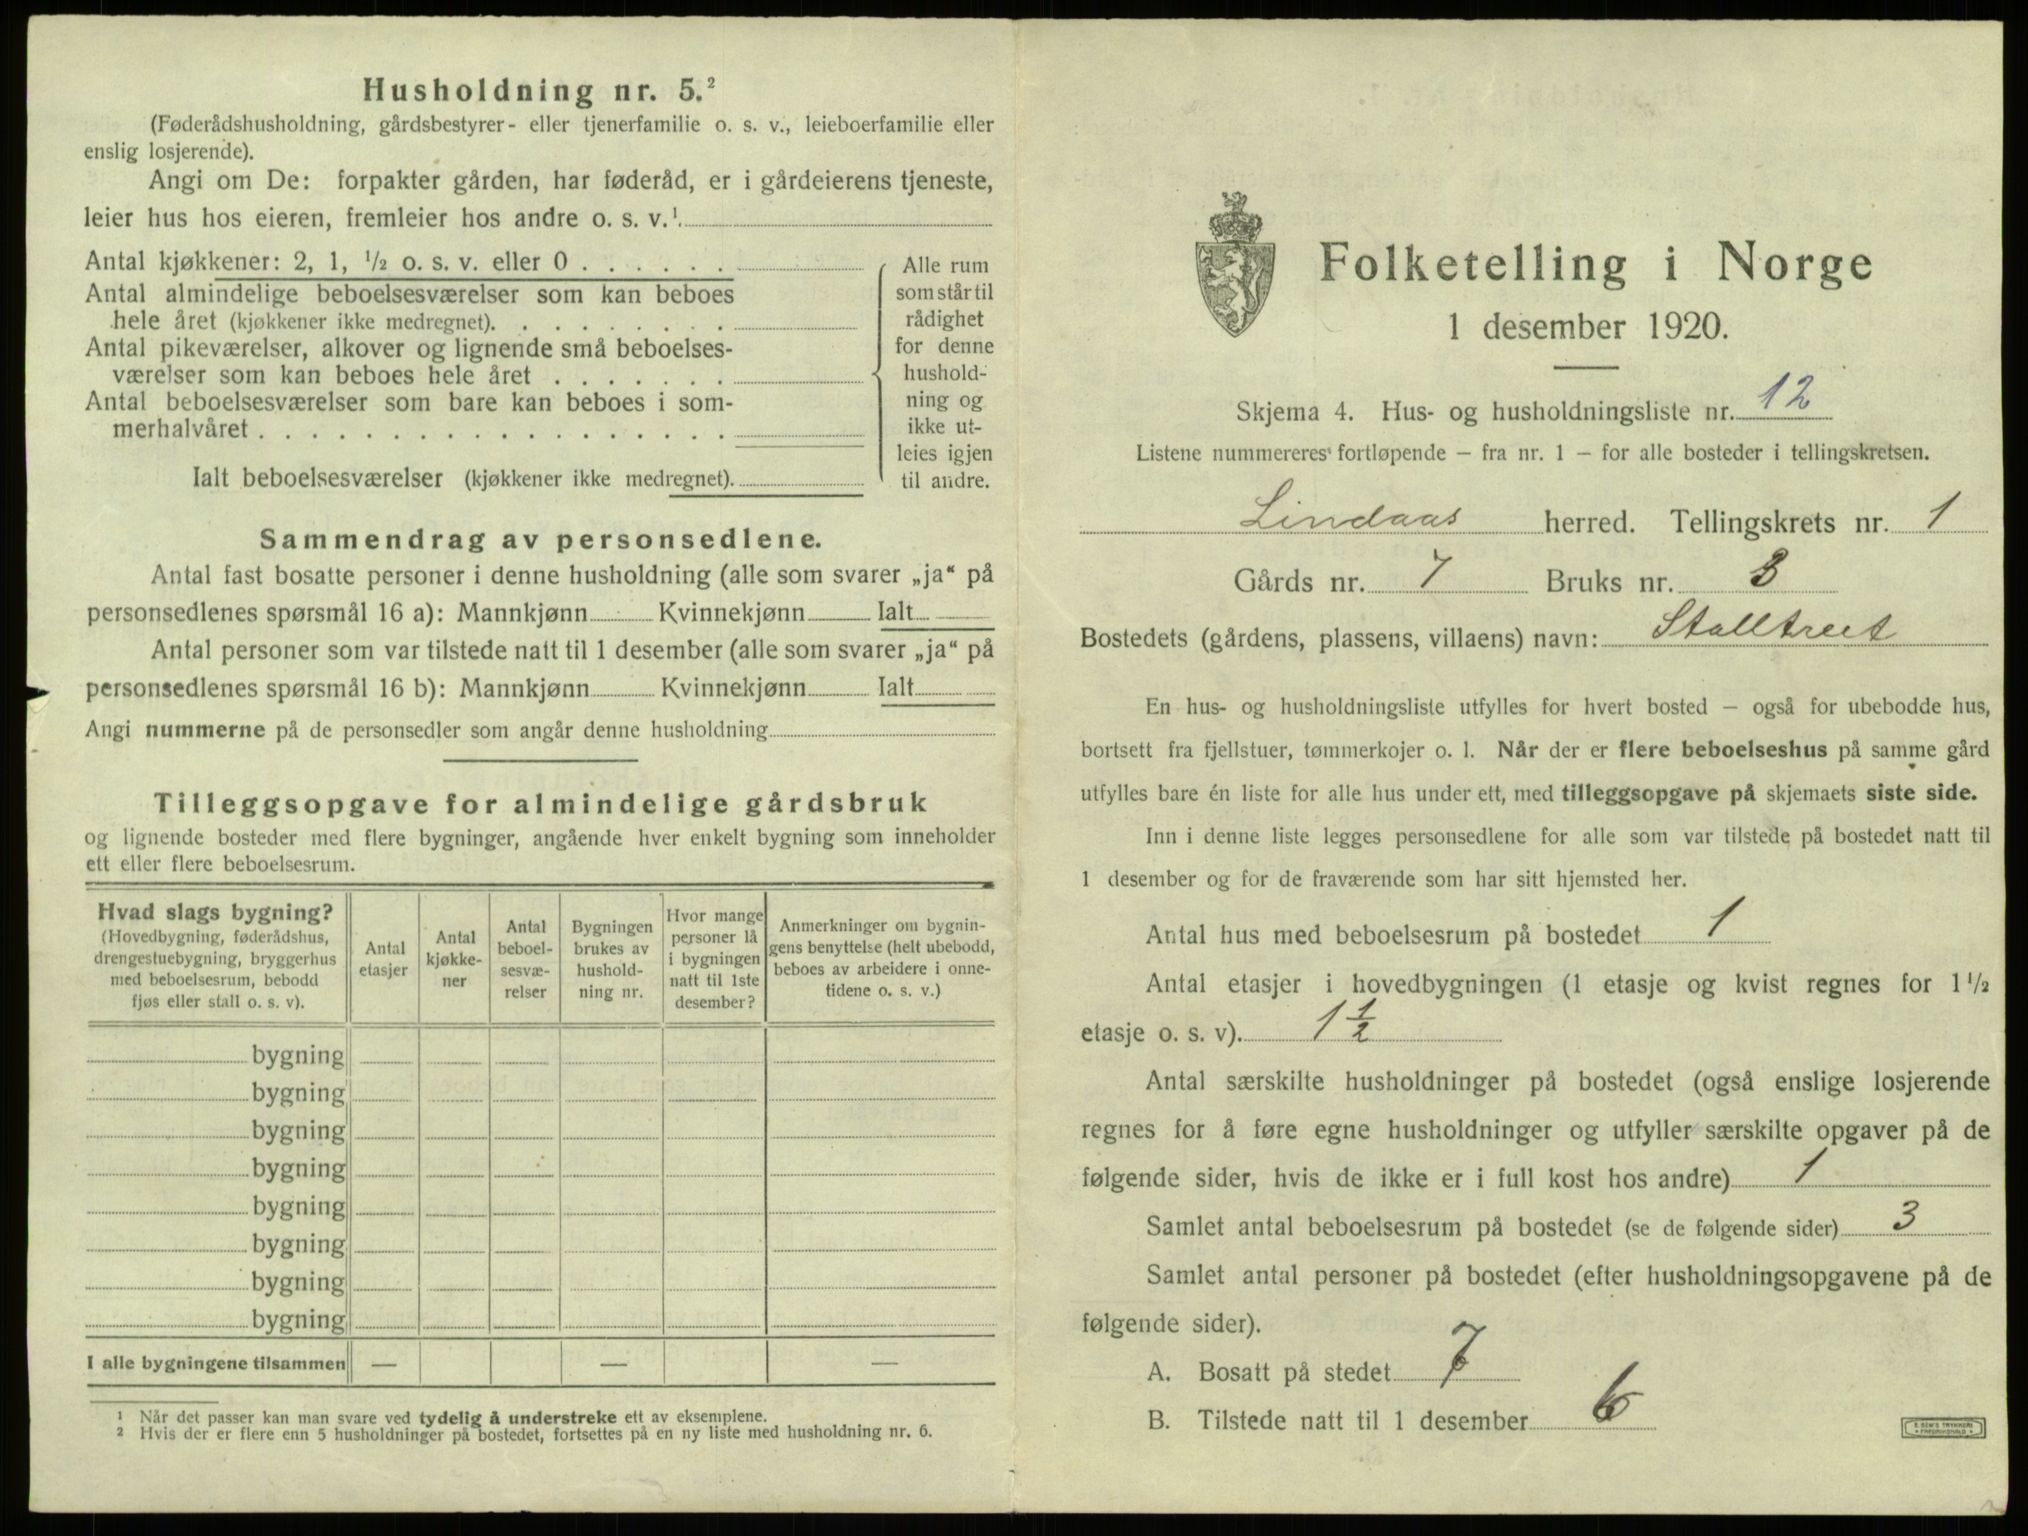 Husholdning nr. 5.²
(Føderådshusholdning, gårdsbestyrer- eller tjenerfamilie o. s. v., leieboerfamilie eller
enslig losjerende).
Angi om De: forpakter gården, har føderåd, er i gårdeierens tjeneste,
leier hus hos eieren, fremleier hos andre o. s. v.¹
Antal kjøkkener: 2, 1, ½ o. s. v. eller 0 . . . . . .
Antal almindelige beboelsesværelser som kan beboes
hele året (kjøkkener ikke medregnet). . . . . . . . .
Antal pikeværelser, alkover og lignende små beboelses-
værelser som kan beboes hele året . . . . . . .
Antal beboelsesværelser som bare kan beboes i som-
merhalvåret . . . . . . . . . . . . . . . . . .
Ialt beboelsesværelser (kjøkkener ikke medregnet).
Alle rum
som står til
rådighet
for denne
hushold-
ning og
ikke ut-
leies igjen
til andre.
Sammendrag av personsedlene.
Antal fast bosatte personer i denne husholdning (alle som svarer „ja“ på
personsedlenes spørsmål 16 a): Mannkjønn Kvinnekjønn Ialt
Antal personer som var tilstede natt til 1 desember (alle som svarer „ja“ på
personsedlenes spørsmål 16 b): Mannkjønn Kvinnekjønn Ialt
Angi nummerne på de personsedler som angår denne husholdning
Tilleggsopgave for almindelige gårdsbruk
og lignende bosteder med flere bygninger, angående hver enkelt bygning som inneholder
ett eller flere beboelsesrum.
Hvad slags bygning?
(Hovedbygning, føderådshus,
drengestuebygning, bryggerhus
med beboelsesrum, bebodd
fjøs eller stall o. s. v).
Antal
etasjer
Antal
kjøkke-
ner
Antal
beboel-
sesvæ-
relser
Bygningen
brukes av
hushold-
ning nr.
Hvor mange
personer lå
i bygningen
natt til 1ste
desember?
Anmerkninger om bygnin-
gens benyttelse (helt ubebodd,
beboes av arbeidere i onne-
tidene o. s. v.)
bygning
bygning
bygning
bygning
bygning
bygning
bygning
bygning
I alle bygningene tilsammen — — —
¹ Når det passer kan man svare ved tydelig å understreke ett av eksemplene.
² Hvis der er flere enn 5 husholdninger på bostedet, fortsettes på en ny liste med husholdning nr. 6.
Folketelling i Norge
1 desember 1920.
Skjema 4. Hus- og husholdningsliste nr. 12
Listene nummereres fortløpende – fra nr. 1 – for alle bosteder i tellingskretsen.
Lindaas herred. Tellingskrets nr. 1
Gårds nr. 7 Bruks nr. 3
Bostedets (gårdens, plassens, villaens) navn: Stalltreet
En hus- og husholdningsliste utfylles for hvert bosted – også for ubebodde hus,
bortsett fra fjellstuer, tømmerkojer o. l. Når der er flere beboelseshus på samme gård
utfylles bare én liste for alle hus under ett, med tilleggsopgave på skjemaets siste side.
Inn i denne liste legges personsedlene for alle som var tilstede på bostedet natt til
1 desember og for de fraværende som har sitt hjemsted her.
Antal hus med beboelsesrum på bostedet 1
Antal etasjer i hovedbygningen (1 etasje og kvist regnes for 1½
etasje o. s. v). 1½
Antal særskilte husholdninger på bostedet (også enslige losjerende
regnes for å føre egne husholdninger og utfyller særskilte opgaver på de
følgende sider, hvis de ikke er i full kost hos andre) 1
Samlet antal beboelsesrum på bostedet (se de følgende sider) 3
Samlet antal personer på bostedet (efter husholdningsopgavene på de
følgende sider).
A. Bosatt på stedet 7
B. Tilstede natt til 1 desember 6
E. SEM'S TRYKKERI
FREDRIKSHALD